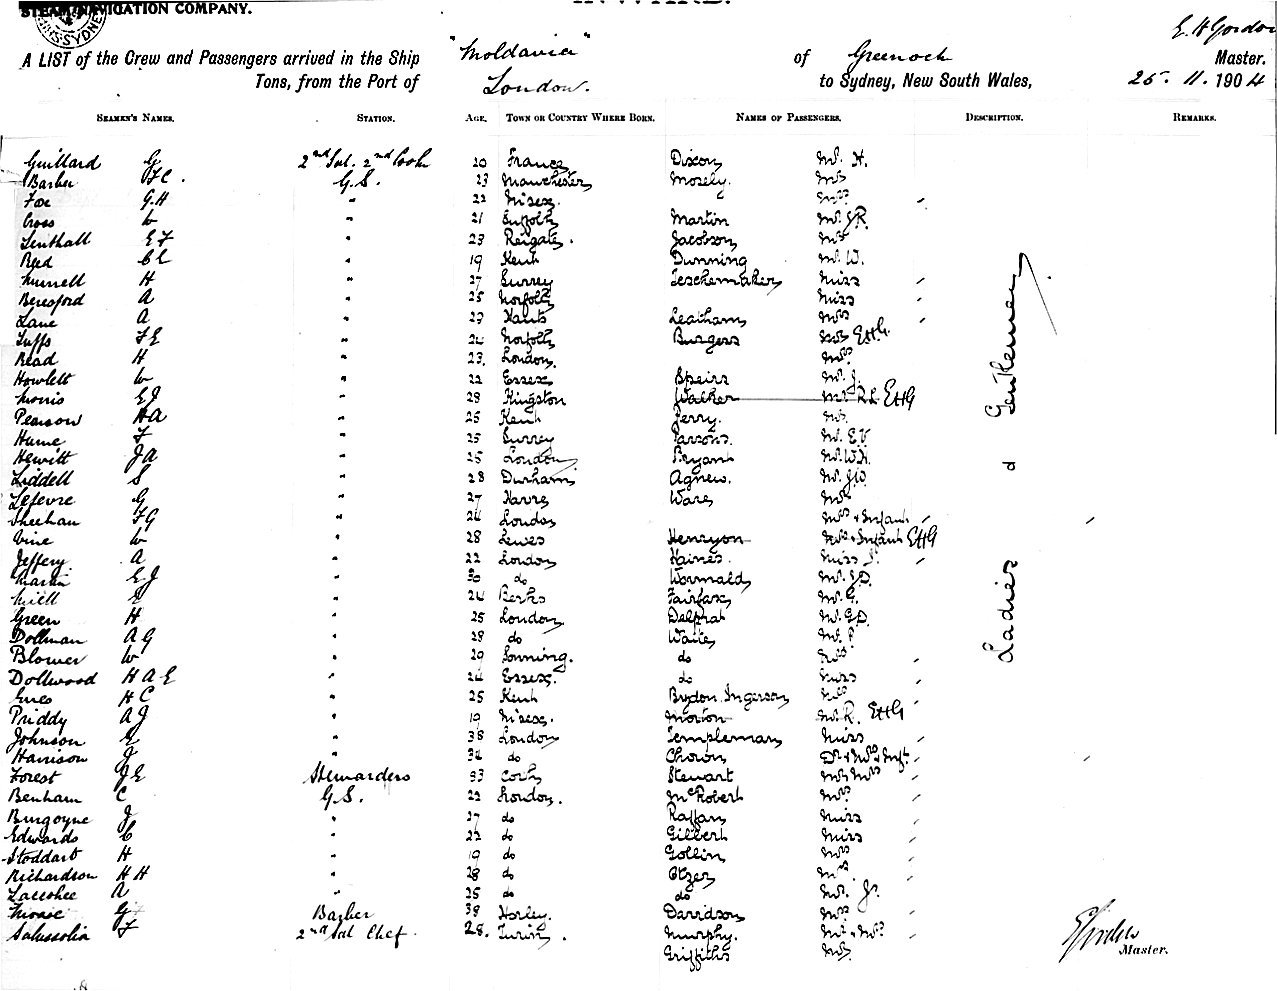 STEAM NAVIGATION COMPANY.
A LIST of the Crew and Passengers arrived in the Ship "Moldavia" of Greenock E. H. Gordon Master.
Tons, from the Port of London. to Sydney, New South Wales, 25. 11. 1904
SEAMEN'S NAMES. STATION. AGE. TOWN OR COUNTRY WHERE BORN. NAMES OF PASSENGERS. DESCRIPTION. REMARKS.
Guillard G 2nd Sal. 2nd Cook 20 France Dixon Mr. H.
Barber F C. G.S. 23 Manchester Mosely.
Fox G.H " 22 M'sex.
Cross W " 21 Suffolk Martin Mr. J.R.
Lenthall E F " 23 Reigate. Jacobson Mr
Reed C E " 19 Kent Dunning Mr. W.
Munnell H " 27 Surrey Teschemaker Miss
Beresford A " 25 Norfolk Miss
Lane A " 23 Hants Leatham Mrs
Tuffs F E " 24 Norfolk Burgess EHG
Read H " 23. London.
Howlett W " 22 Essex Speirs Mr. J.
Morris E J " 28 Kingston Walker Mr. R L EHG
Pearson H A " 25 Kent Perry.
Hume F " 25 Surrey Parsons. Mr. E V
Hewitt J A " 25 London Bryant Mr. W.H.
Liddell S " 28 Durham Agnew. Mr. J.W.
Lefevre G " 27 Havre Ware Mr
Sheehan F G " 24 London Mrs + Infant
Vine W " 28 Lewes Henryon Mrs + Infant EHG
Jeffery A " 22 London Haines. Miss
Martin E J " 30 do Wormald Mr. J.D.
Mill E " 24 Berks Fairfax Mr. G.
Green H " 25 London Delprat Mr. G D.
Dollman A G " 28 do Waite Mr. P
Blower W " 29 Sonning. do Mrs
Dollwood H A E " 24 Essex. do Miss
H C " 25 Kent Bydon Ingerson
Priddy A J " 19 M'sex. Morton Mr. R. EHG
Johnson E " 38 London Templeman Miss
Harrison J " 34 do Chown Dr + Mrs + Inft.
Forest J E Stewardess 33 Cork Stewart Mr + Mrs
Benham C G.S. 22 London. McRobert Mrs
Burgoyne J " 27 do Raffan Miss
Edwards C " 22 do Gilbert Miss
Stoddart H " 19 do Gollin Mrs
Richardson H H " 28 do Otzen Mrs
A " 25 do do Mr. Jr.
G Barber 38 Horley. Davidson Mrs
Salussolia F 2nd Sal Chef 28. Turin. Murphy. Mr + Mrs
Griffiths
Ladies & Gentlemen
Master.